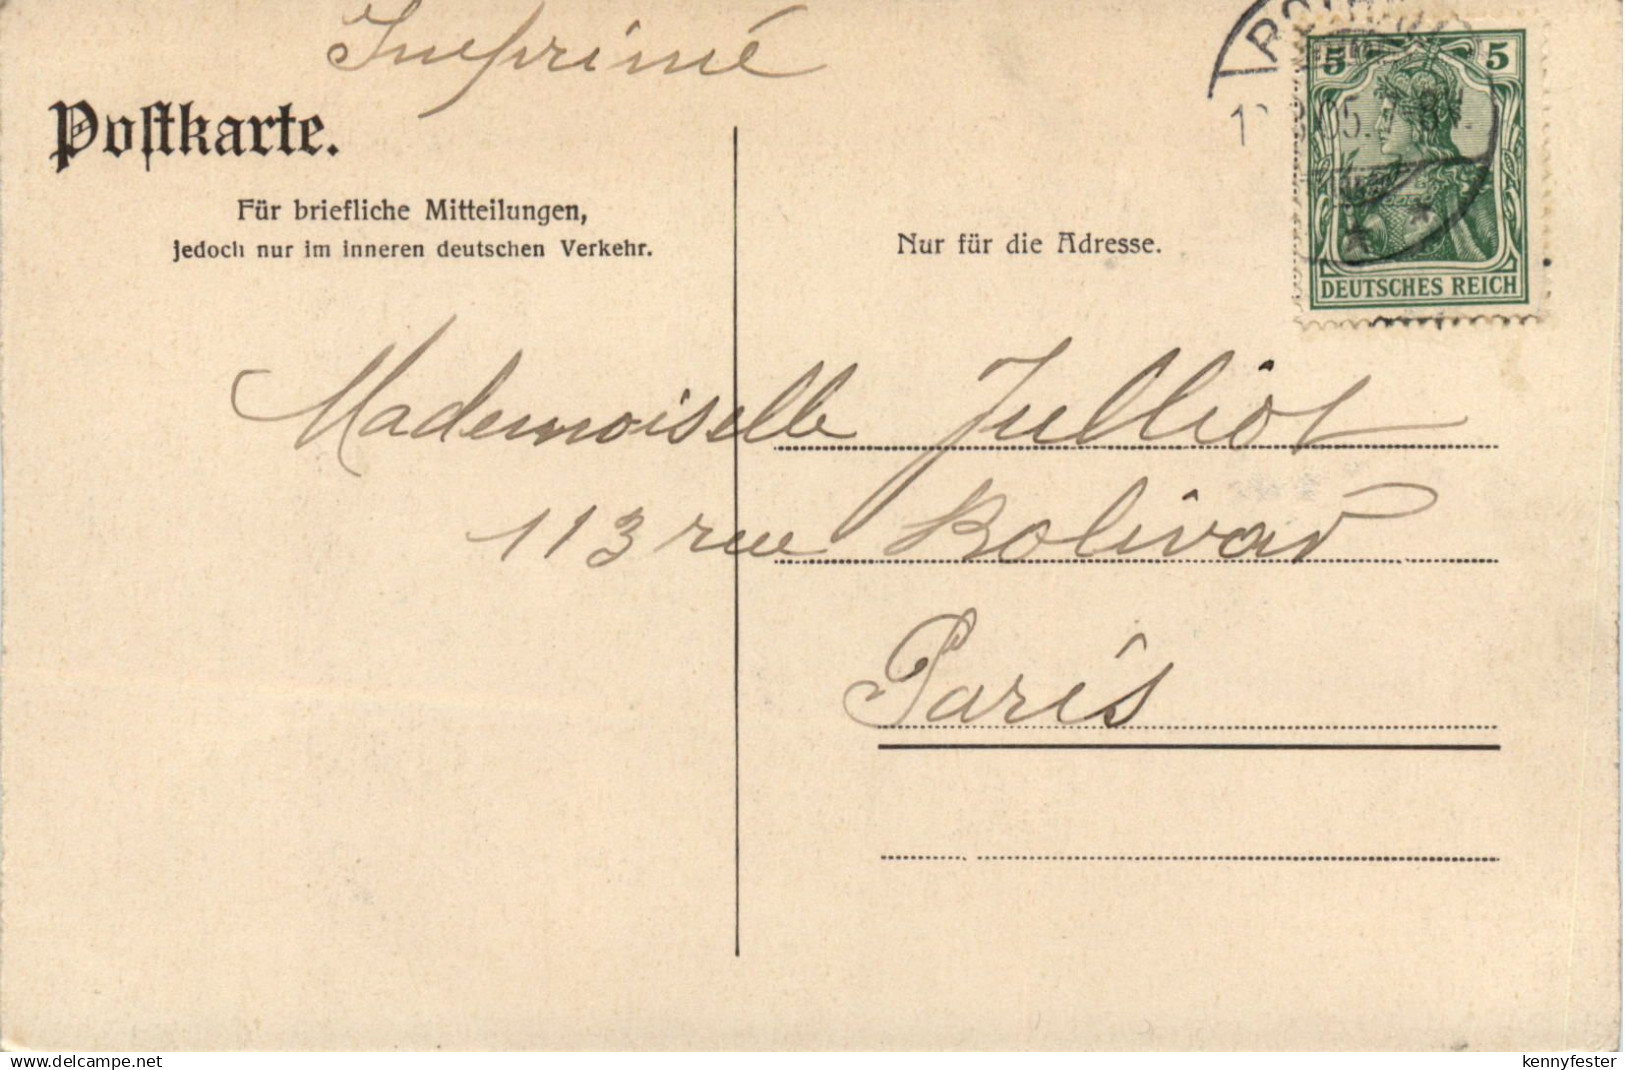 Imprimé
Postkarte.
Für briefliche Mitteilungen,
jedoch nur im inneren deutschen Verkehr.
Nur für die Adresse.
5 5
DEUTSCHES REICH
Mademoiselle Julliot
113 rue Bolivar
Paris
delcampe.net
kennyfester